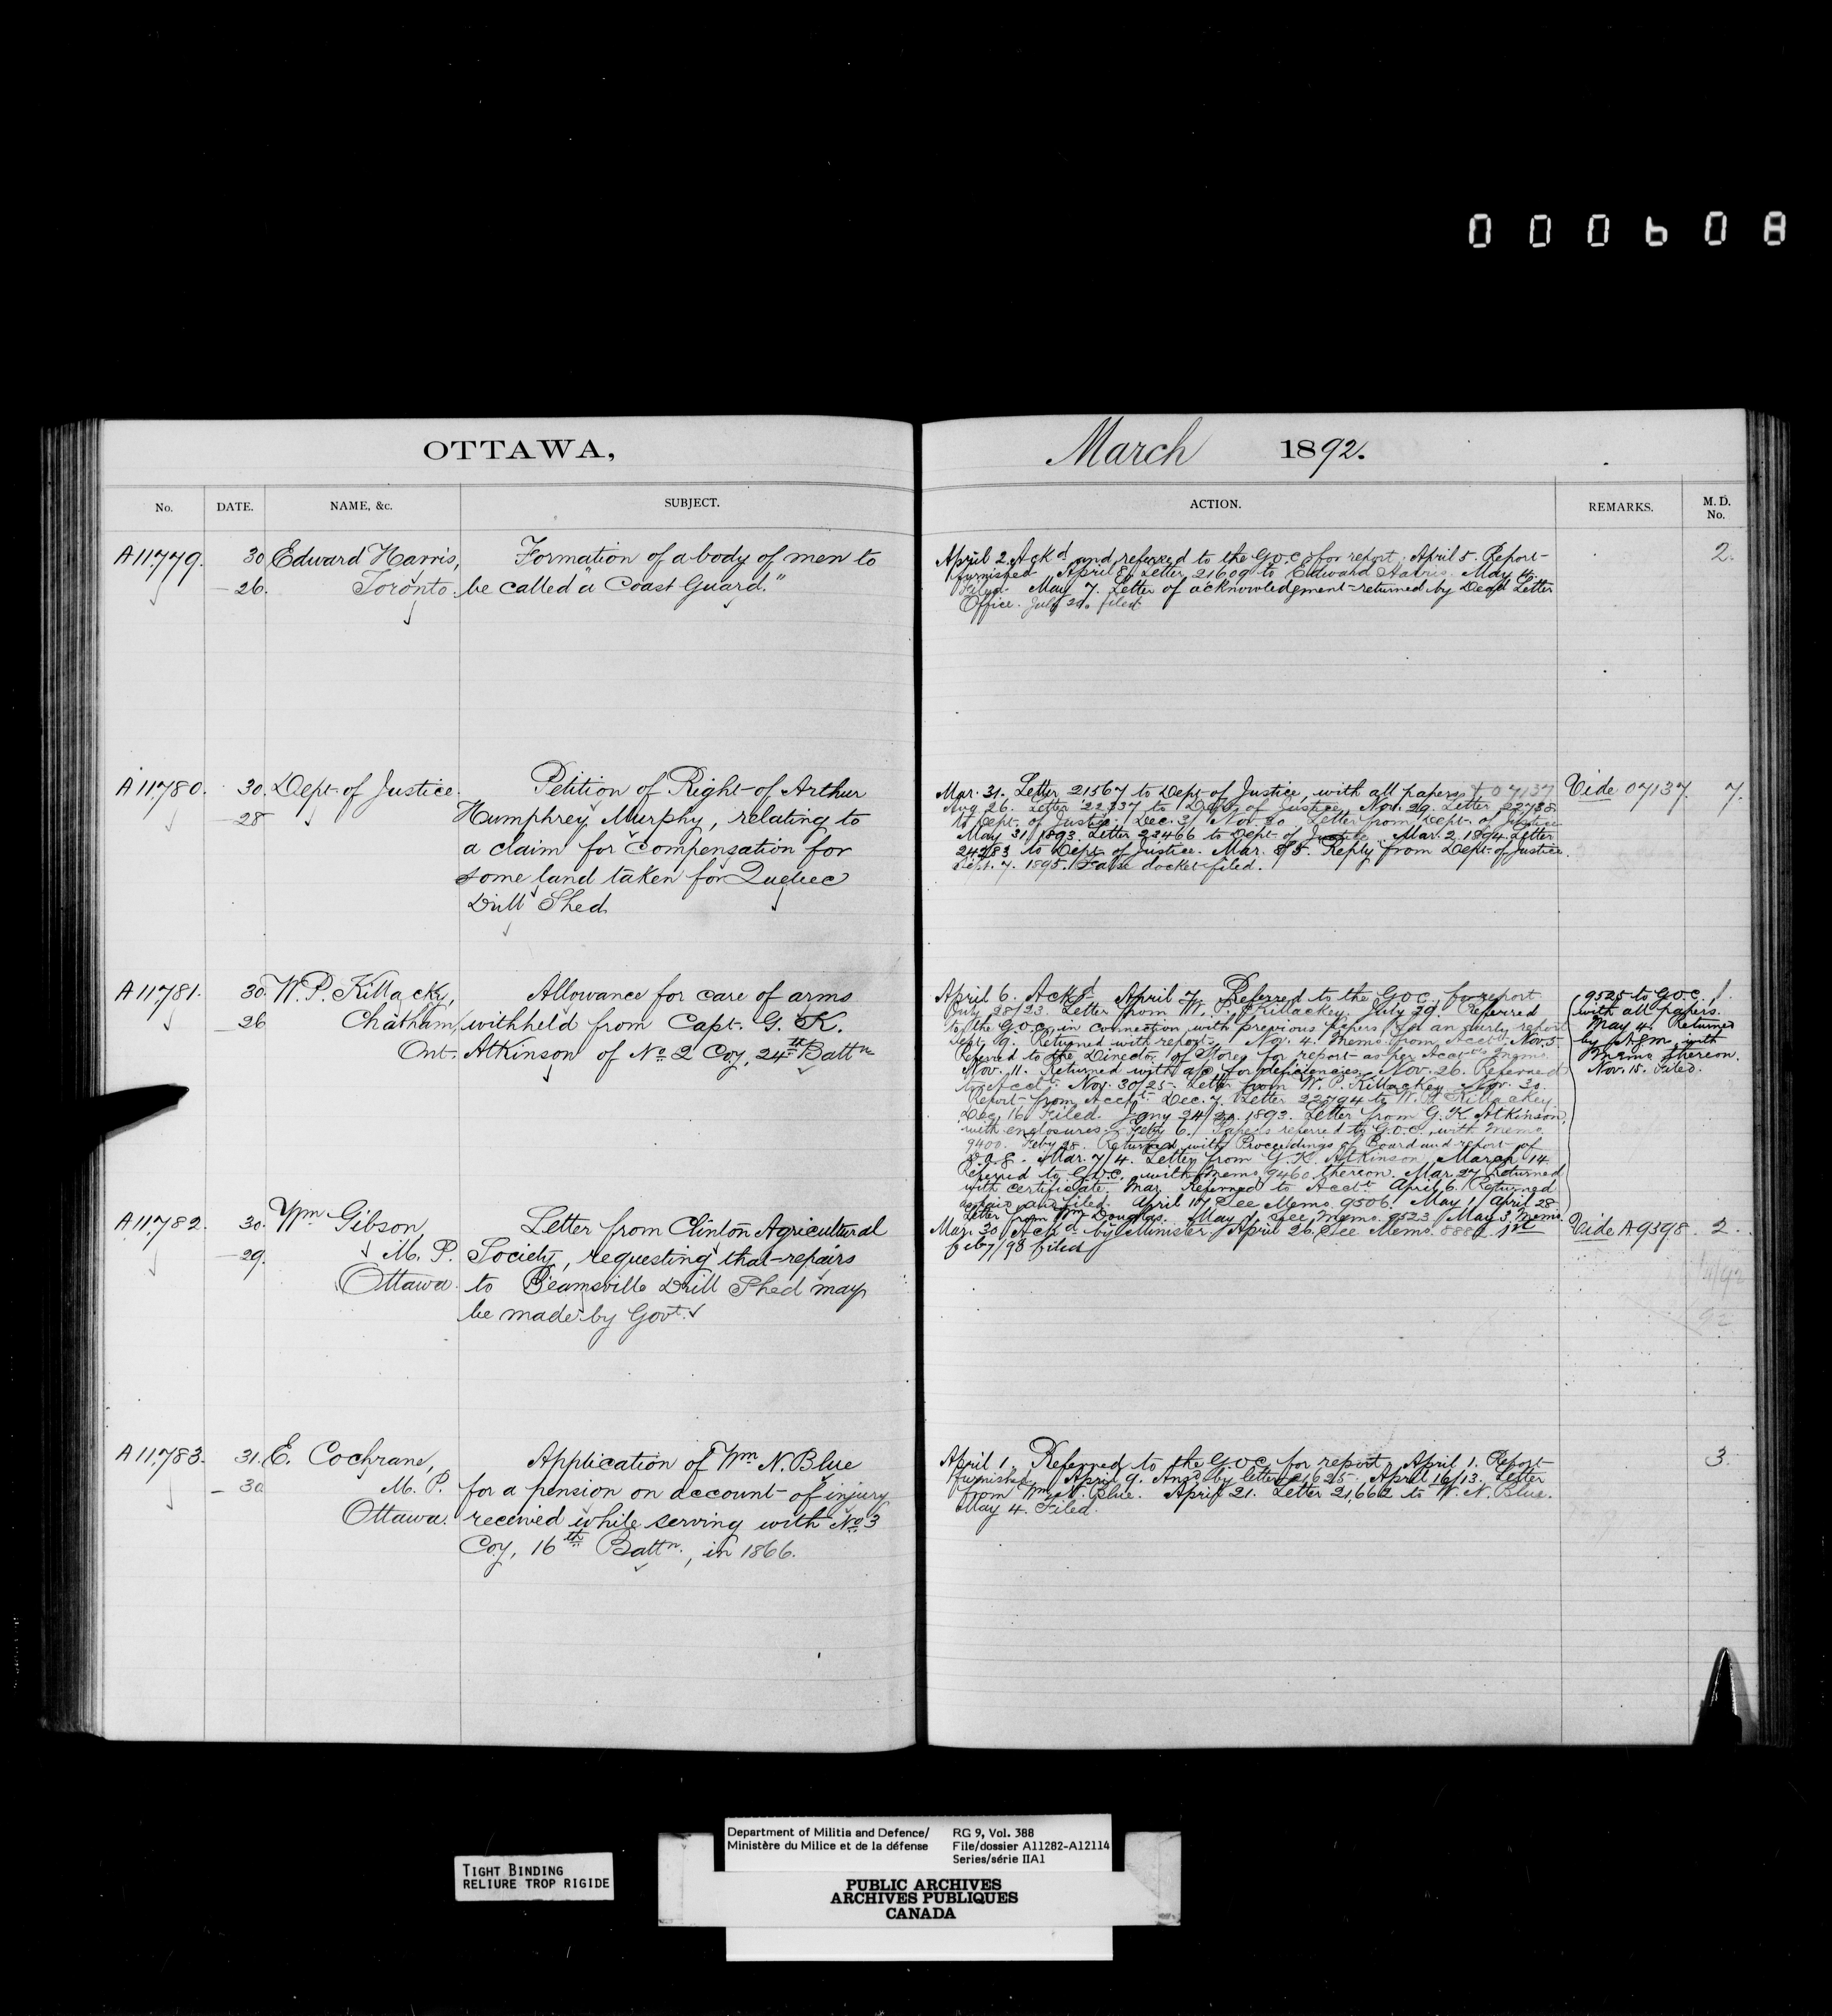 000608
OTTAWA,
March 1892.
No.
DATE.
NAME, &c.
SUBJECT.
ACTION.
REMARKS.
M. D. No.
A11779.
30
26.
Edward Harris,
Toronto.
Formation of a body of men to
be called a Coast Guard."
April 2. Ackd and referred to the G.O.C. for report. April 5. Report
furnished. April 8. Letter 21609 to Edward Harris. May 4.
Filed. May 7. Letter of acknowledgment returned by Dead Letter
Office. July 20. filed
2.
A11780.
30.
28
Dept. of Justice.
Petition of Right of Arthur
Humphrey Murphy, relating to
a claim for compensation for
some land taken for Quebec
Drill Shed
Mar. 31. Letter 21567 to Dept of Justice, with all papers & 07137
Aug 26. Letter 22337 to Dept. of Justice. Nov. 29. Letter 22738
to Dept. of Justice. Dec. 3/ Nov. 30 Letter from Dept. of Justice
May 31/1893. Letter 23466 to Dept of Justice. Mar. 2. 1894. Letter
24283 to Dept of Justice. Mar. 8/5. Reply from Dept. of Justice.
Sept. 7. 1895. False docket filed.
Vide 07137.
7.
A11781.
30.
26
W. P. Killacky,
Chatham,
Ont.
Allowance for care of arms
withheld from Capt. G. K.
Atkinson of No 2 Coy, 24th Battn
April 6. Ackd. April 7. Referred to the G.O.C. for report
July 28/23. Letter from W. P. Killackey. July 29. Referred
to the G.O.C. in connection with previous papers for an early report
Sept. 19. Returned with report. Nov. 4. Memo. from Acct. Nov. 5
Referred to the Director of Stores for report as per Acct's Memo.
Nov. 11. Returned with a/c for deficiencies. Nov. 26. Referred
to Acct. Nov. 30/25. Letter from W. P. Killackey. Nov. 30.
Report from Acct. Dec. 7. Letter 22794 to W. P. Killackey.
Dec. 16. Filed. Jany 24/20. 1893. Letter from G. K. Atkinson,
with enclosures. Feby 6. Papers referred to G.O.C., with memo
9400. Feby 28. Returned with Proceedings of Board and report of
Mar. 7/4. Letter from G. K. Atkinson. March 14
Referred to G.O.C. with memo 9460 thereon. Mar. 27 Returned
with certificate. Mar. Referred to Acct. April 6. Returned
and filed. April 17 See Memo. 9506. May 1/April 28
Letter from Wm Douglas. May 1. See Memo. 9523. May 3. Memo.
9525 to G.O.C.
with all papers.
May 4. Returned
by with
Memo thereon.
Nov. 15. Filed.
1.
A11782.
30.
29.
Wm Gibson,
M. P.
Ottawa.
Letter from Clinton Agricultural
Society, requesting that repairs
to Beamsville Drill Shed may
be made by Govt.
Mar. 30 Ackd. by Minister. April 26. See Memo.
Feb 7/98 filed
Vide A9398.
2.
A11783.
31.
30
E. Cochrane,
M. P.
Ottawa.
Application of Wm N. Blue
for a pension on account of injury
received while serving with No 3
Coy, 16th Battn., in 1866.
April 1. Referred to the G.O.C. for report. April 1. Report
furnished. April 9. Ansd by letter 21625. April 16/13. Letter
from Wm N. Blue. April 21. Letter 21,662 to W. N. Blue.
May 4. Filed.
3.
TIGHT BINDING
RELIURE TROP RIGIDE
Department of Militia and Defence/
Ministère du Milice et de la défense
RG 9, Vol. 388
File/dossier A11282-A12114
Series/série IIA1
PUBLIC ARCHIVES
ARCHIVES PUBLIQUES
CANADA